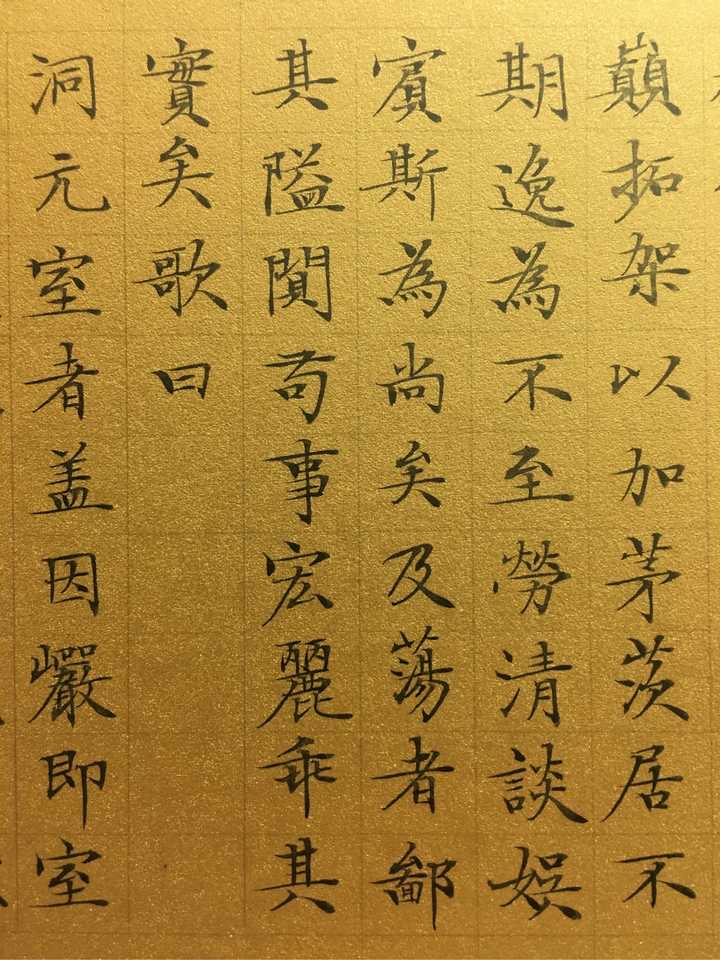 巔拓架以加茅茨居不
期逸為不至勞清談娛
賓斯為尚矣及蕩者鄙
其隘闃苟事宏麗乖其
實矣歌曰
洞元室者盖因巖即室